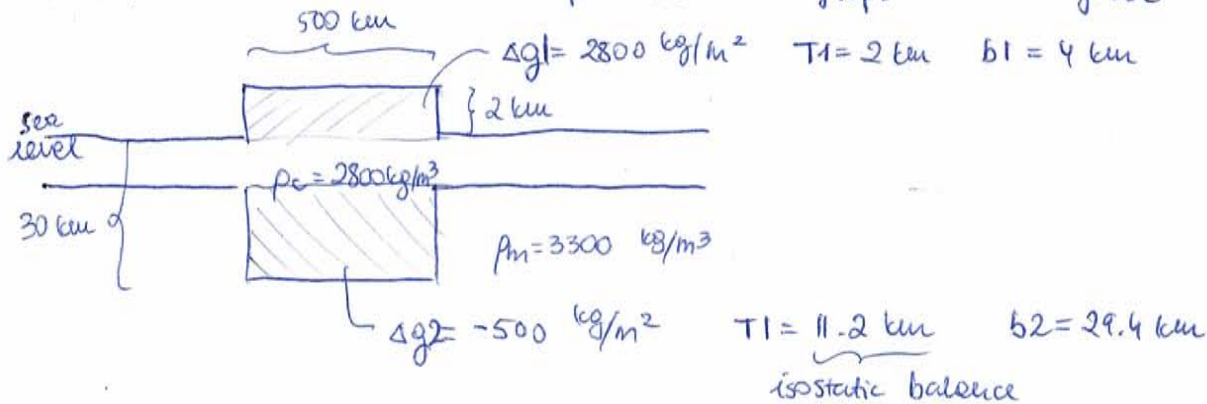 500 km
Δg1= 2800 kg/m² T1= 2 km b1 = 4 km
} 2 km
sea
level
ρc = 2800kg/m³
30 km
ρm=3300 kg/m³
Δg2= -500 kg/m² T1= 11.2 km b2= 29.4 km
isostatic balance